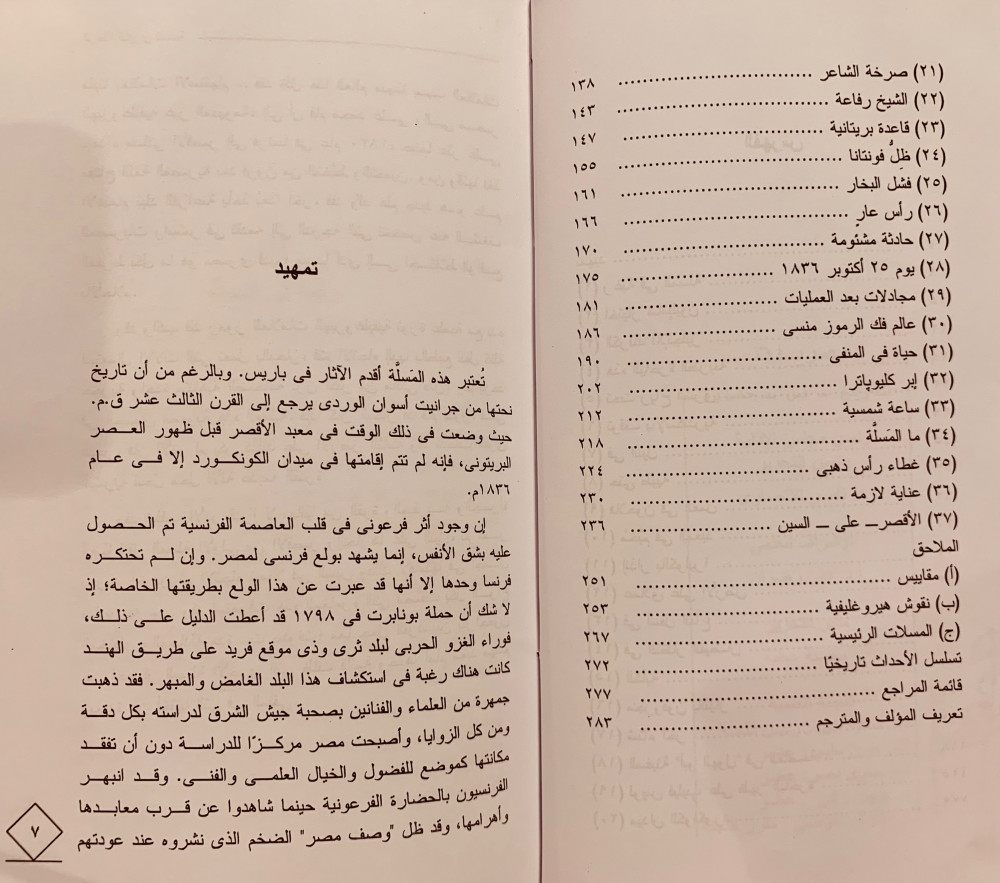 (٢١) صرخة الشاعر ................................ ١٣٨
(٢٢) الشيخ رفاعة ................................ ١٤٣
(٢٣) قاعدة بريتانية ................................ ١٤٧
(٢٤) ظِلُّ فونتانا ................................ ١٥٥
(٢٥) فشل البخار ................................ ١٦١
(٢٦) رأس عارٍ ................................ ١٦٦
(٢٧) حادثة مشئومة ................................ ١٧٠
(٢٨) يوم ٢٥ أكتوبر ١٨٣٦ ................................ ١٧٥
(٢٩) مجادلات بعد العمليات ................................ ١٨١
(٣٠) عالم فك الرموز منسى ................................ ١٨٦
(٣١) حياة فى المنفى ................................ ١٩٠
(٣٢) إبر كليوباترا ................................ ٢٠٢
(٣٣) ساعة شمسية ................................ ٢١٢
(٣٤) ما المَسلَّة ................................ ٢١٨
(٣٥) غطاء رأس ذهبى ................................ ٢٢٤
(٣٦) عناية لازمة ................................ ٢٣٠
(٣٧) الأقصرـ على ـ السين ................................ ٢٣٦
الملاحق
(أ) مقاييس ................................ ٢٥١
(ب) نقوش هيروغليفية ................................ ٢٥٣
(ج) المسلات الرئيسية ................................ ٢٦٧
تسلسل الأحداث تاريخيًا ................................ ٢٧٢
قائمة المراجع ................................ ٢٧٧
تعريف المؤلف والمترجم ................................ ٢٨٣
تمهيد
تُعتبر هذه المَسلَّة أقدم الآثار فى باريس. وبالرغم من أن تاريخ
نحتها من جرانيت أسوان الوردى يرجع إلى القرن الثالث عشر ق.م.
حيث وضعت فى ذلك الوقت فى معبد الأقصر قبل ظهور العـصر
البريتونى، فإنه لم تتم إقامتها فى ميدان الكونكـورد إلا فـى عـام
١٨٣٦م.
إن وجود أثر فرعونى فى قلب العاصمة الفرنسية تم الحـصول
عليه بشق الأنفس، إنما يشهد بولع فرنسى لمصر. وإن لـم تحتكـره
فرنسا وحدها إلا أنها قد عبرت عن هذا الولع بطريقتها الخاصة؛ إذ
لا شك أن حملة بونابرت فى ١٧٩٨ قد أعطت الدليل علـى ذلـك،
فوراء الغزو الحربى لبلد ثرى وذى موقع فريد على طريـق الهند
كانت هناك رغبة فى استكشاف هذا البلد الغامض والمبهر. فقد ذهبت
جمهرة من العلماء والفنانين بصحبة جيش الشرق لدراسته بكل دقـة
ومن كل الزوايا، وأصبحت مصر مركـزًا للدراسة دون أن تفقـد
مكانتها كموضع للفضول والخيال العلمـى والفنـى. وقـد انبهـر
الفرنسيون بالحضارة الفرعونية حينما شاهدوا عن قـرب معابدهـا
وأهرامها، وقد ظل "وصف مصر" الضخم الذى نشروه عند عودتهم
٧